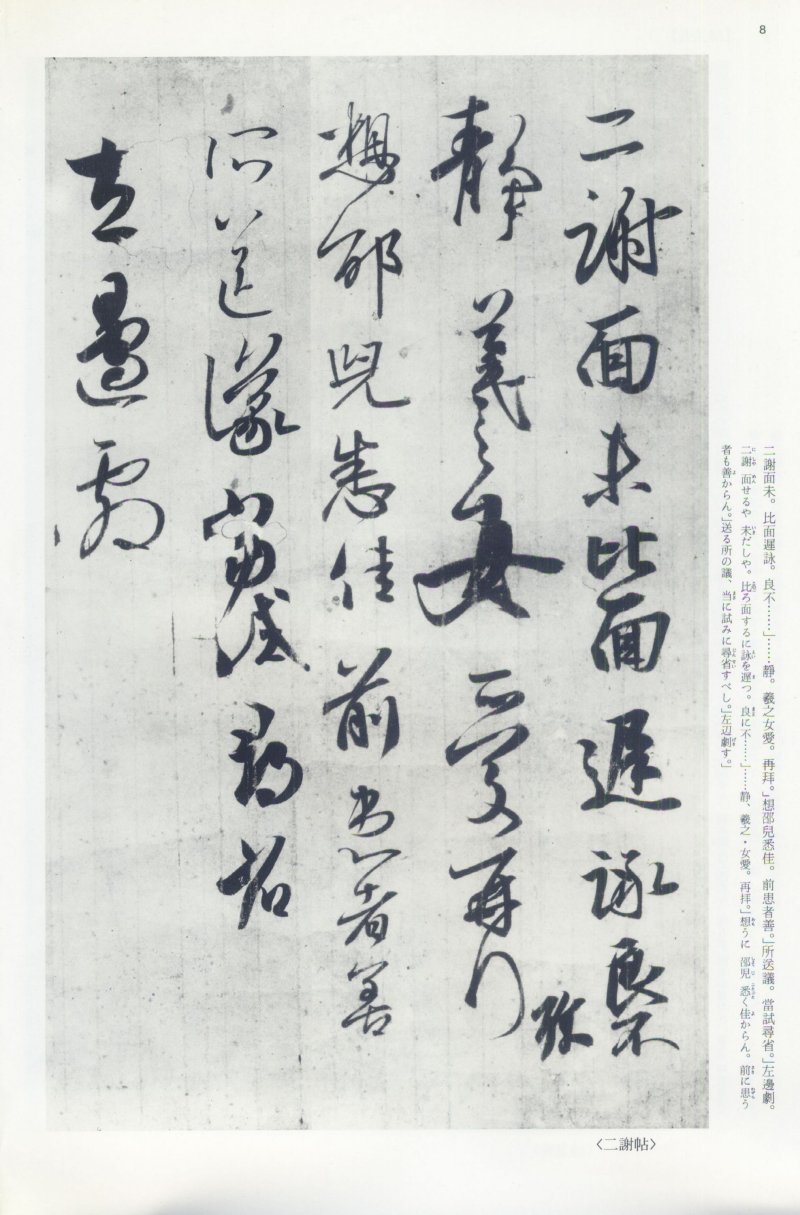 8
二謝面未比面遲詠良不
靜羲之女愛再拜
想邵兒悉佳前患者善
所送議當試尋省
左邊劇
二謝面未。比面遲詠。良不……」……靜。羲之女愛。再拜。」想邵兒悉佳。前患者善。」所送議。當試尋省。」左邊劇。
二謝 面せるや 未だしや。比ろ面するに詠を遅つ。良に不……」……静、羲之・女愛。再拝。」想うに 邵兒 悉く佳からん。前に患う
者も善からん。」送る所の議、当に試みに尋省すべし。」左辺劇す。」
〈二謝帖〉